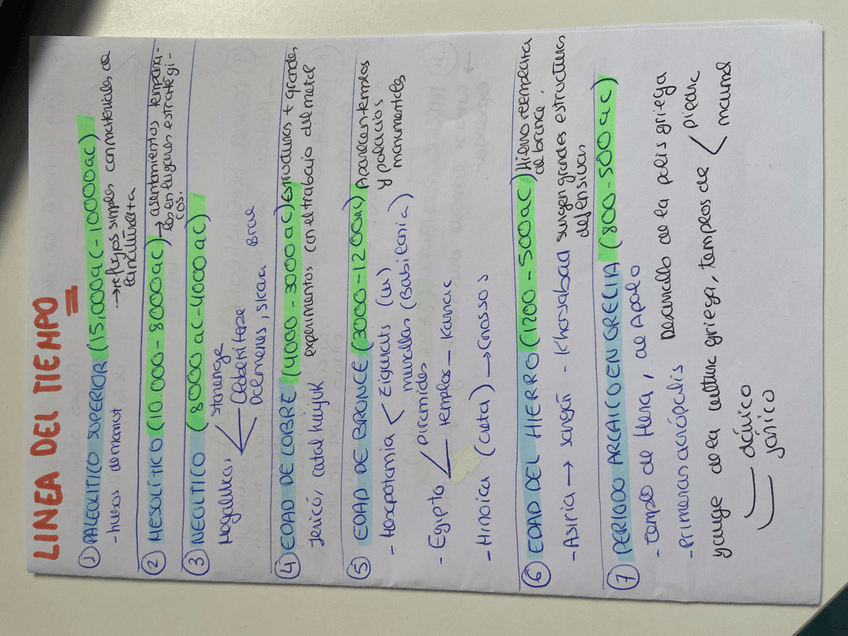 LINEA DEL TIEMPO
① PALEOLITICO SUPERIOR (15.000aC-10000aC)
- huesos de mamut → refugios simples con materiales de
② MESOLITICO (10.000-8000aC) → asentamientos tempora-
les en lugares estratégi-
cos.
③ NEOLITICO (8000aC-4000aC)
Megalitos stonenge
Gobeklitepe
Dólmenes, skara Brae
④ EDAD DE COBRE (4000-3000aC) estructuras + grandes
Jericó, catal huiyuk experimentos con el trabajo del metal
⑤ EDAD DE BRONCE (3000-1200aC) Aparecen templos
y palacios
monumentales
- Mesopotamia < Zigurats (Ur)
murallas (Babilonia)
- Egipto < piramides
templos - Karnak
- Minoica (Creta) → Cnossos
⑥ EDAD DEL HIERRO (1200-500aC) Hierro reemplaza
al bronce.
- Asiria → sargón - Khorsabad surgen grandes estructuras
defensivas
⑦ PERIODO ARCAICO EN GRECIA (800-500aC)
- Templo de Hera, de Apolo
- Primeras acrópolis Desarrollo de la polis griega
y auge de la cultura griega, templos de < piedra
marmol
dórico
jónico